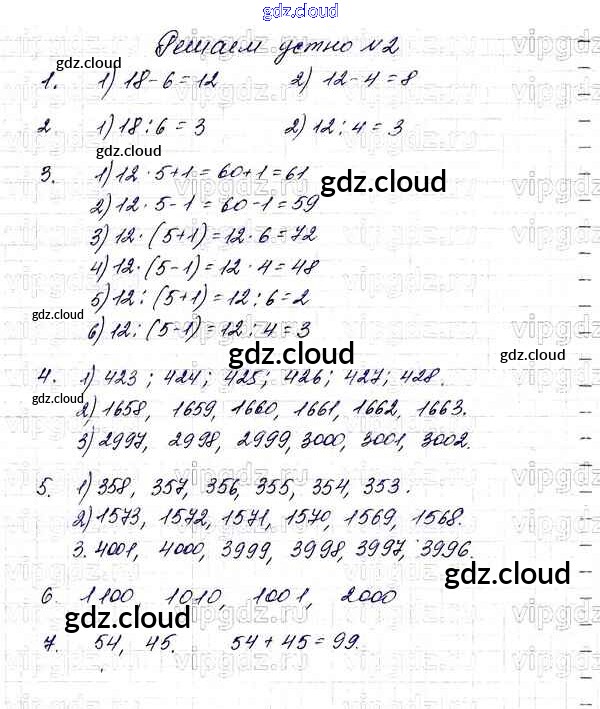 gdz.cloud
Решаем устно №2
gdz.cloud
1. 1) 18-6=12 2) 12-4=8
2 1) 18:6=3 2) 12:4=3
gdz.cloud
3. 1) 12·5+1=60+1=61
gdz.cloud
2) 12·5-1=60-1=59
3) 12·(5+1)=12·6=72
4) 12·(5-1)=12·4=48
5) 12:(5+1)=12:6=2
gdz.cloud
6) 12:(5-1)=12:4=3
gdz.cloud gdz.cloud
4. 1) 423; 424; 425; 426; 427; 428.
gdz.cloud
2) 1658, 1659, 1660, 1661, 1662, 1663.
3) 2997, 2998, 2999, 3000, 3001, 3002.
5. 1) 358, 357, 356, 355, 354, 353.
2) 1573, 1572, 1571, 1570, 1569, 1568.
3. 4001, 4000, 3999, 3998, 3997, 3996.
gdz.cloud
6. 1100 1010, 1001, 2000
gdz.cloud
7. 54, 45. 54+45=99.